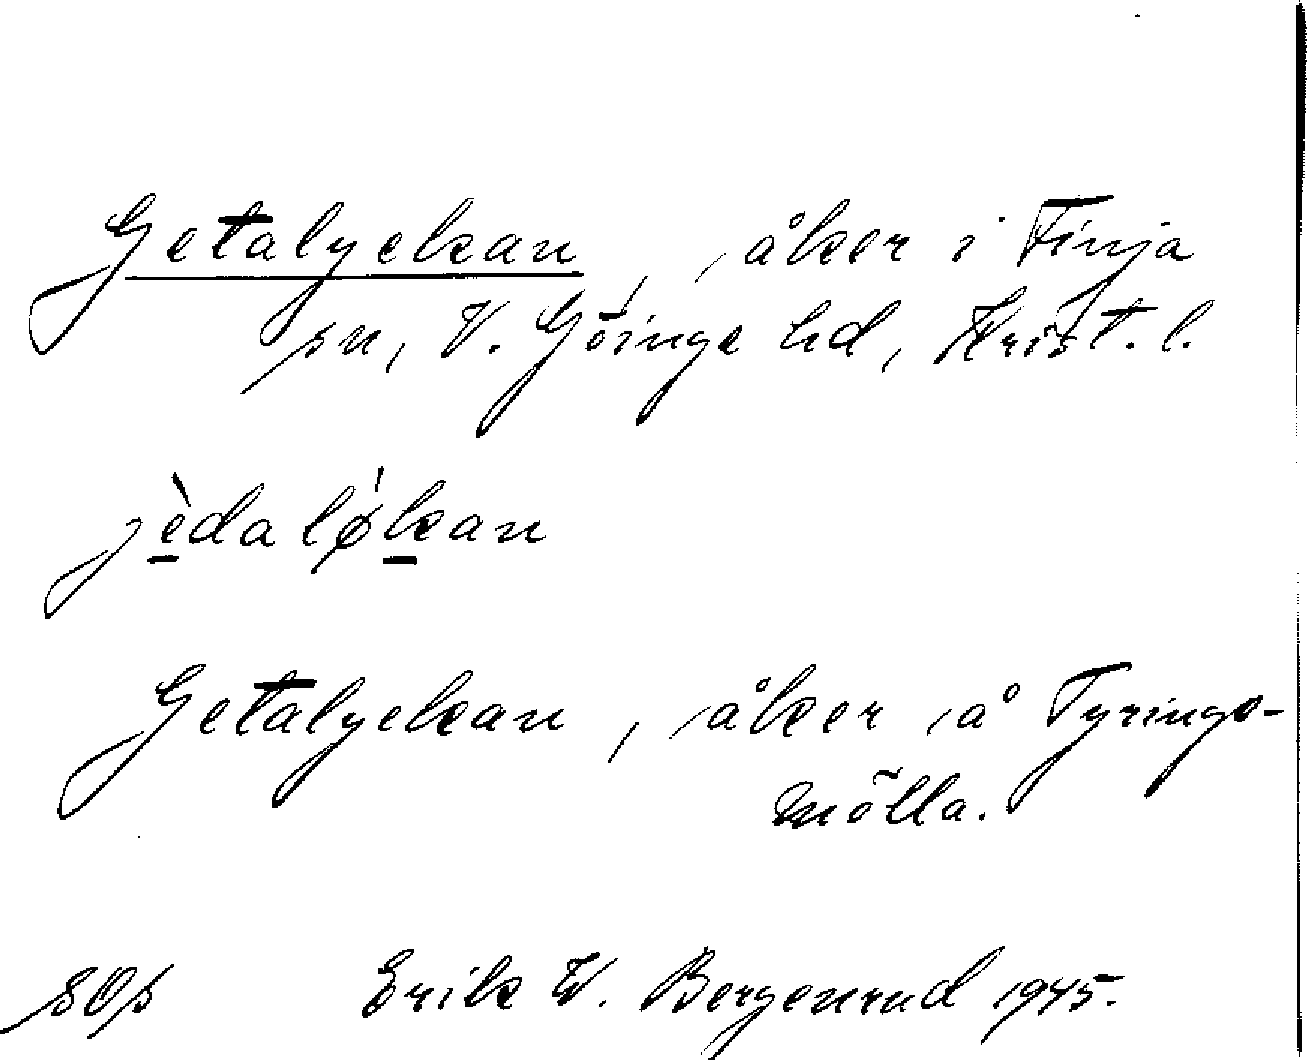 Getalyckan, åker i Finja
sn, V. Göinge hd, Krist. l.
jèdaløkan
Getalyckan, åker å Tyringe-
mölla.
SOs
Erik W. Bergenrud 1945.